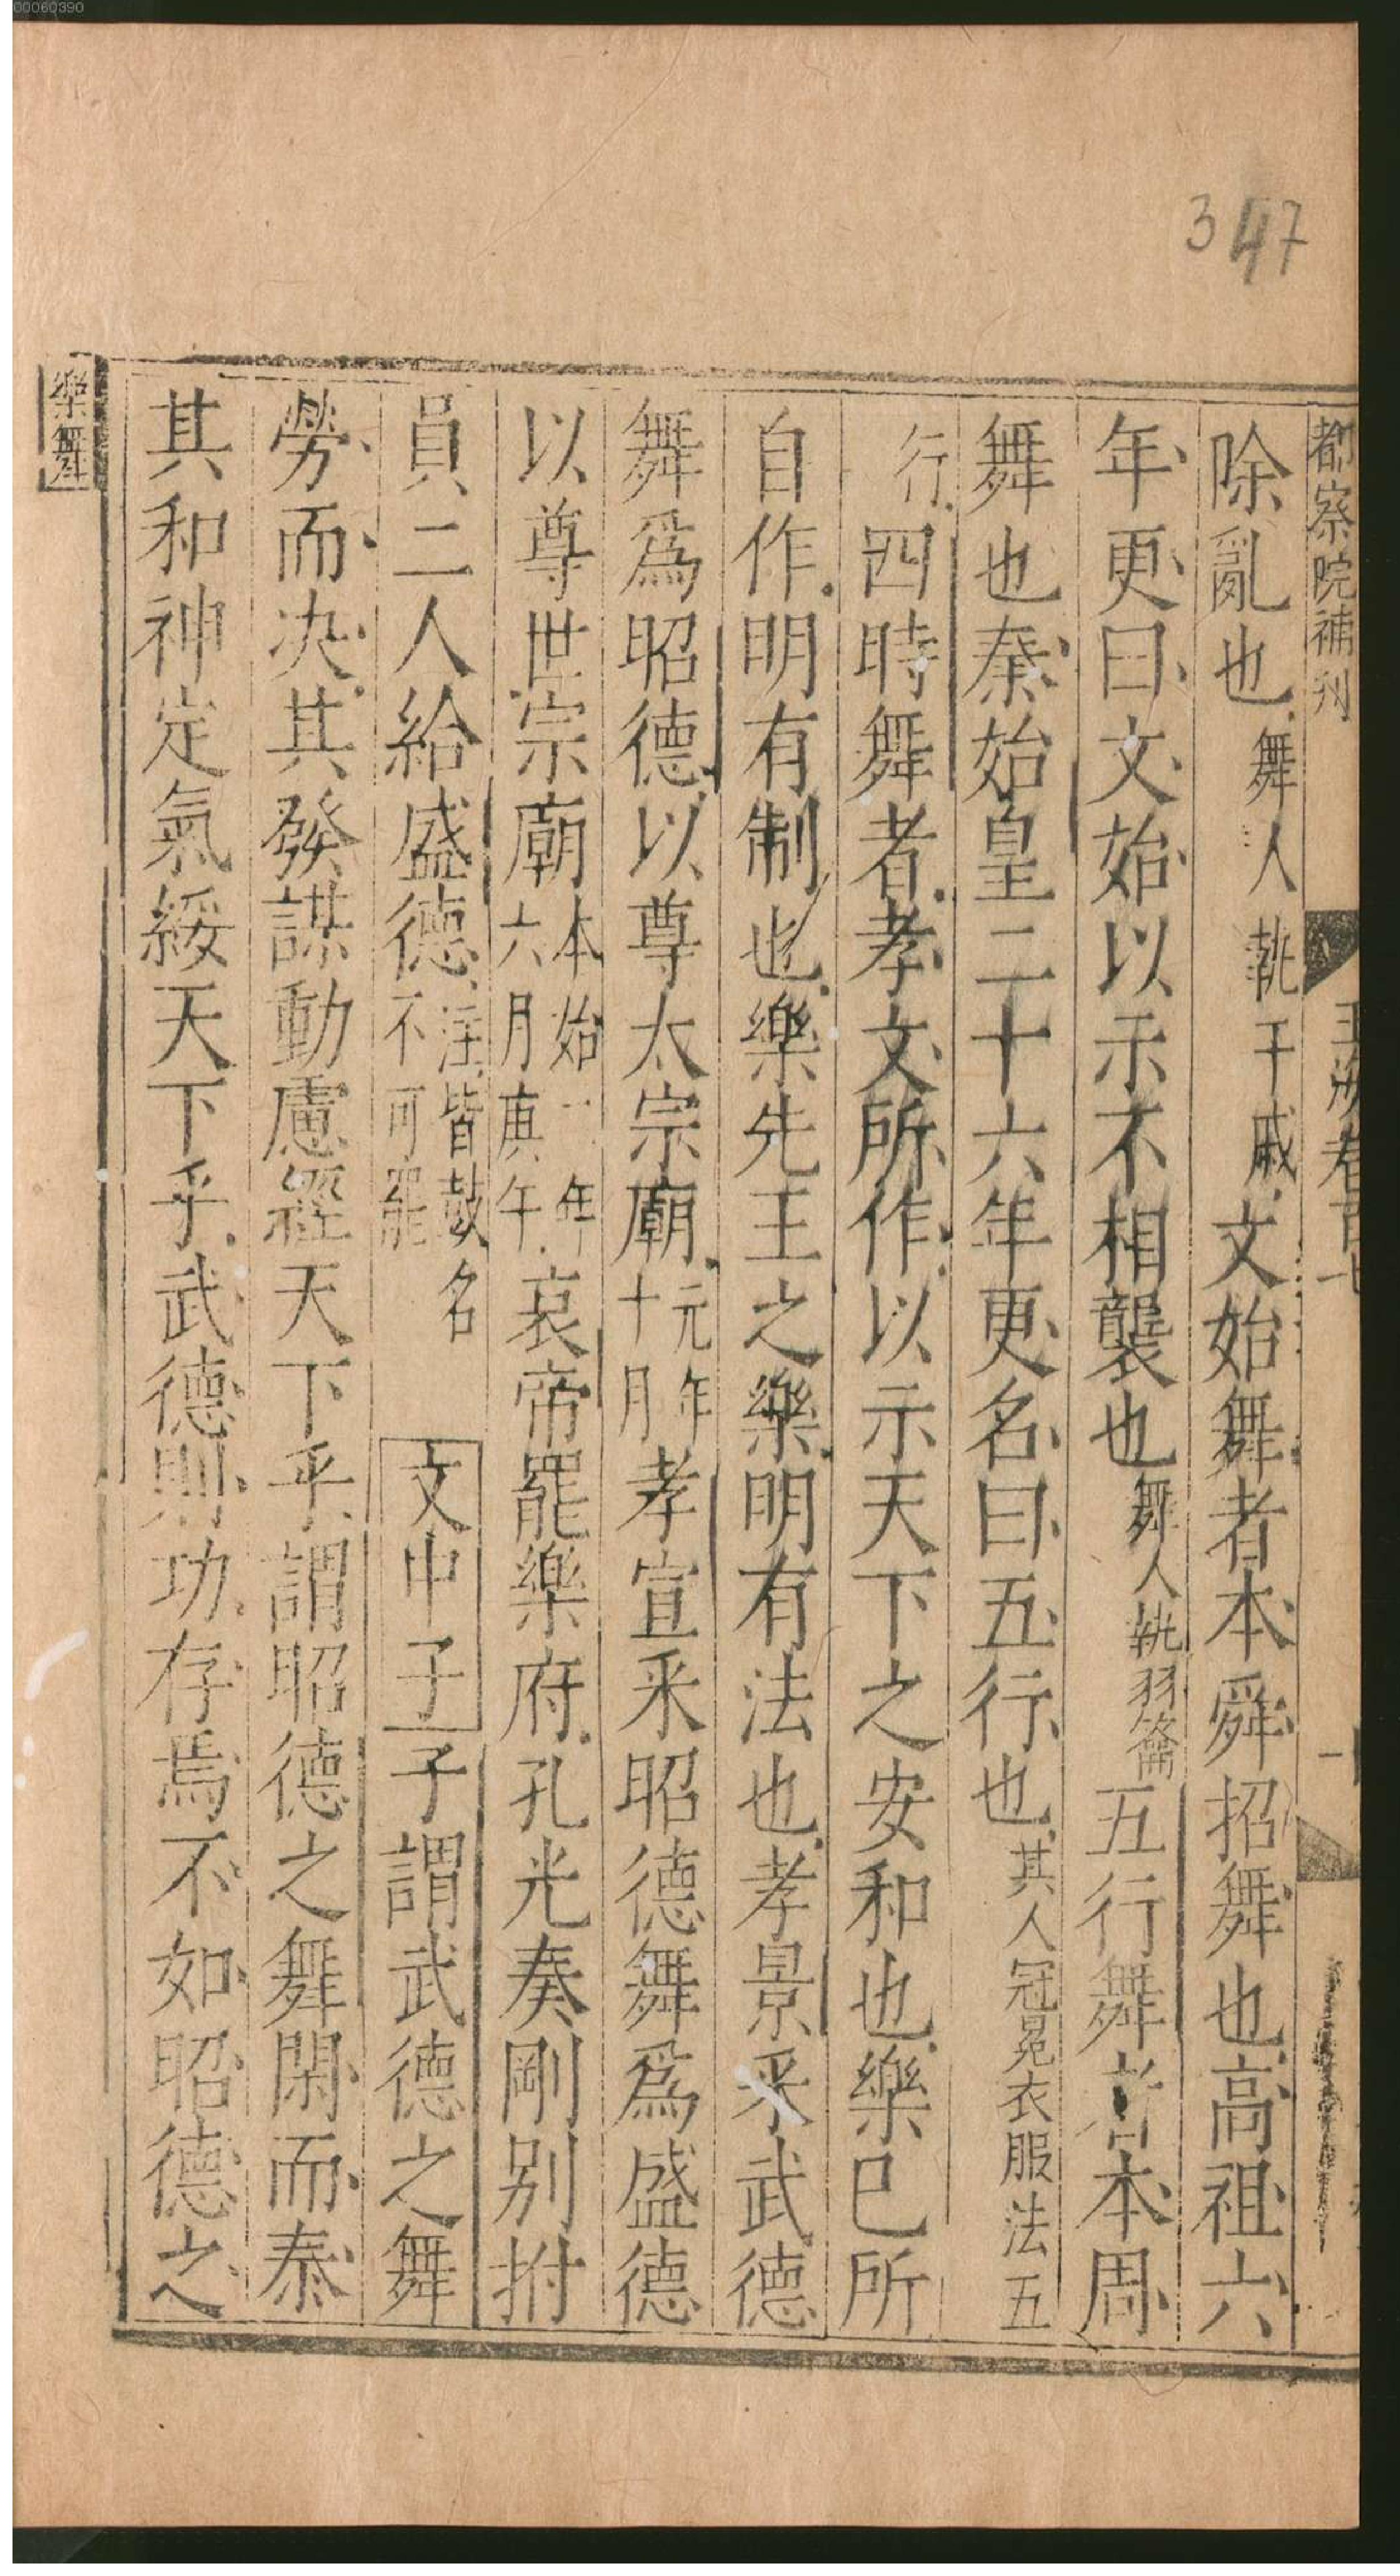 00060390
347
都察院補刋
玉海卷百七
一
除亂也舞人執干戚文始舞者本舜招舞也高祖六
年更曰文始以示不相襲也舞人執羽籥五行舞者本周
舞也秦始皇二十六年更名曰五行也其人冠冕衣服法五
行四時舞者孝文所作以示天下之安和也樂已所
自作明有制也樂先王之樂明有法也孝景采武德
舞爲昭德以尊太宗廟元年十月孝宣采昭德舞爲盛德
以尊世宗廟本始二年六月庚午哀帝罷樂府孔光奏剛别拊
員二人給盛德注皆鼓名不可罷文中子子謂武德之舞
勞而决其發謀動慮經天下乎謂昭德之舞閑而泰
其和神定氣綏天下乎武德則功存焉不如昭德之
樂舞